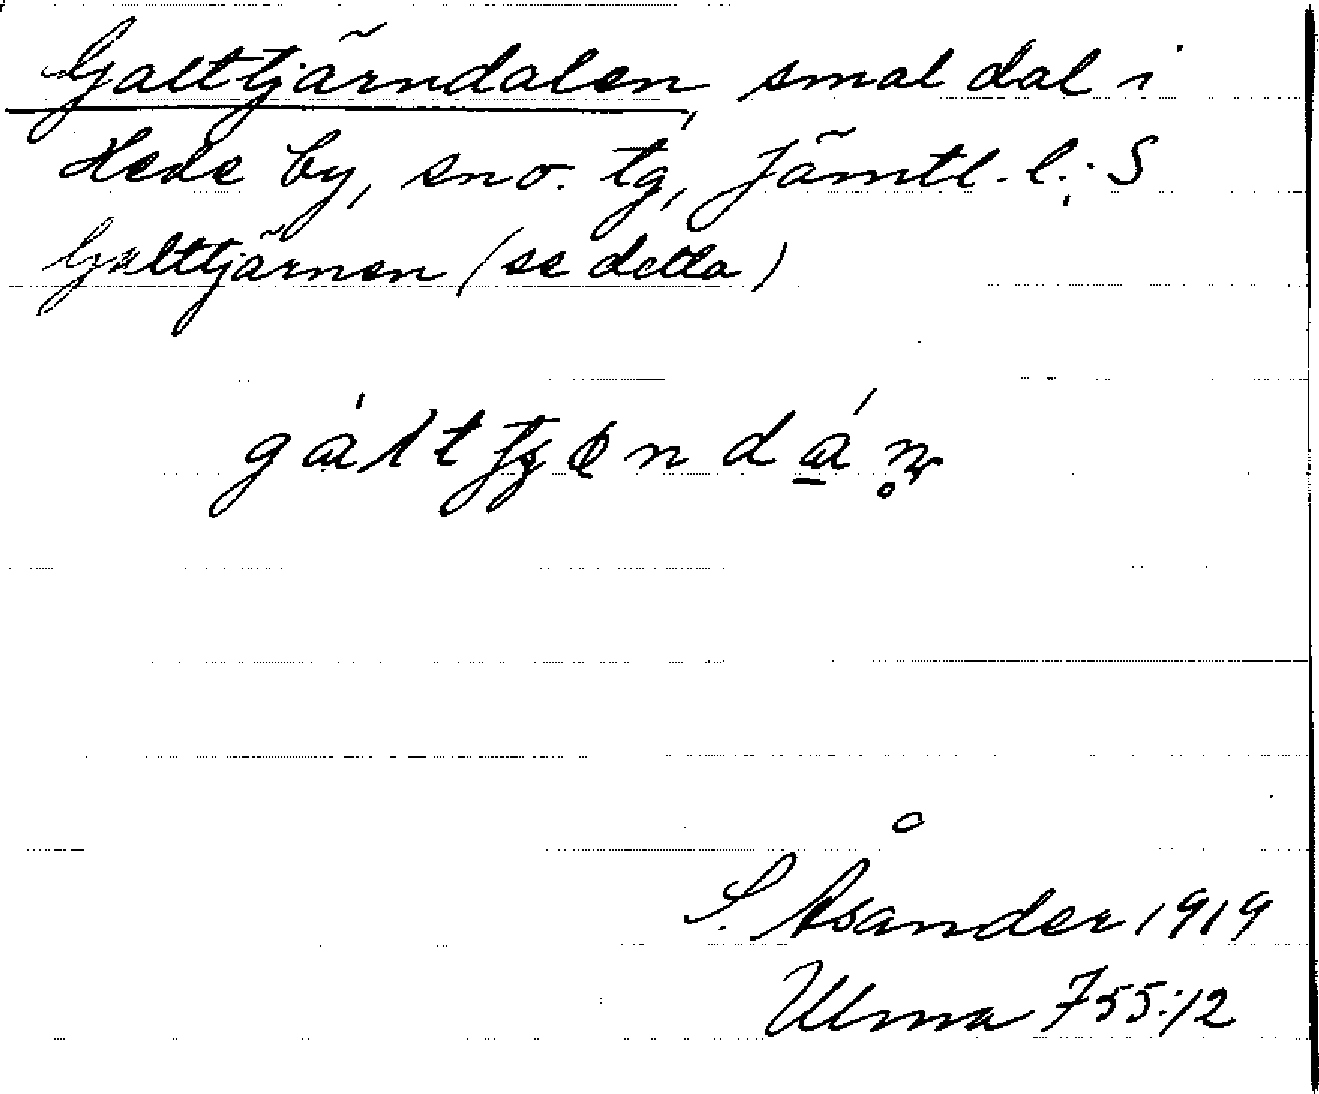 Galttjärndalen, smal dal i
Hede by, sno. tg, Jämtl. l.; S
Galttjärnen (se detta)
S. Åsander 1919
Ulma 755:12